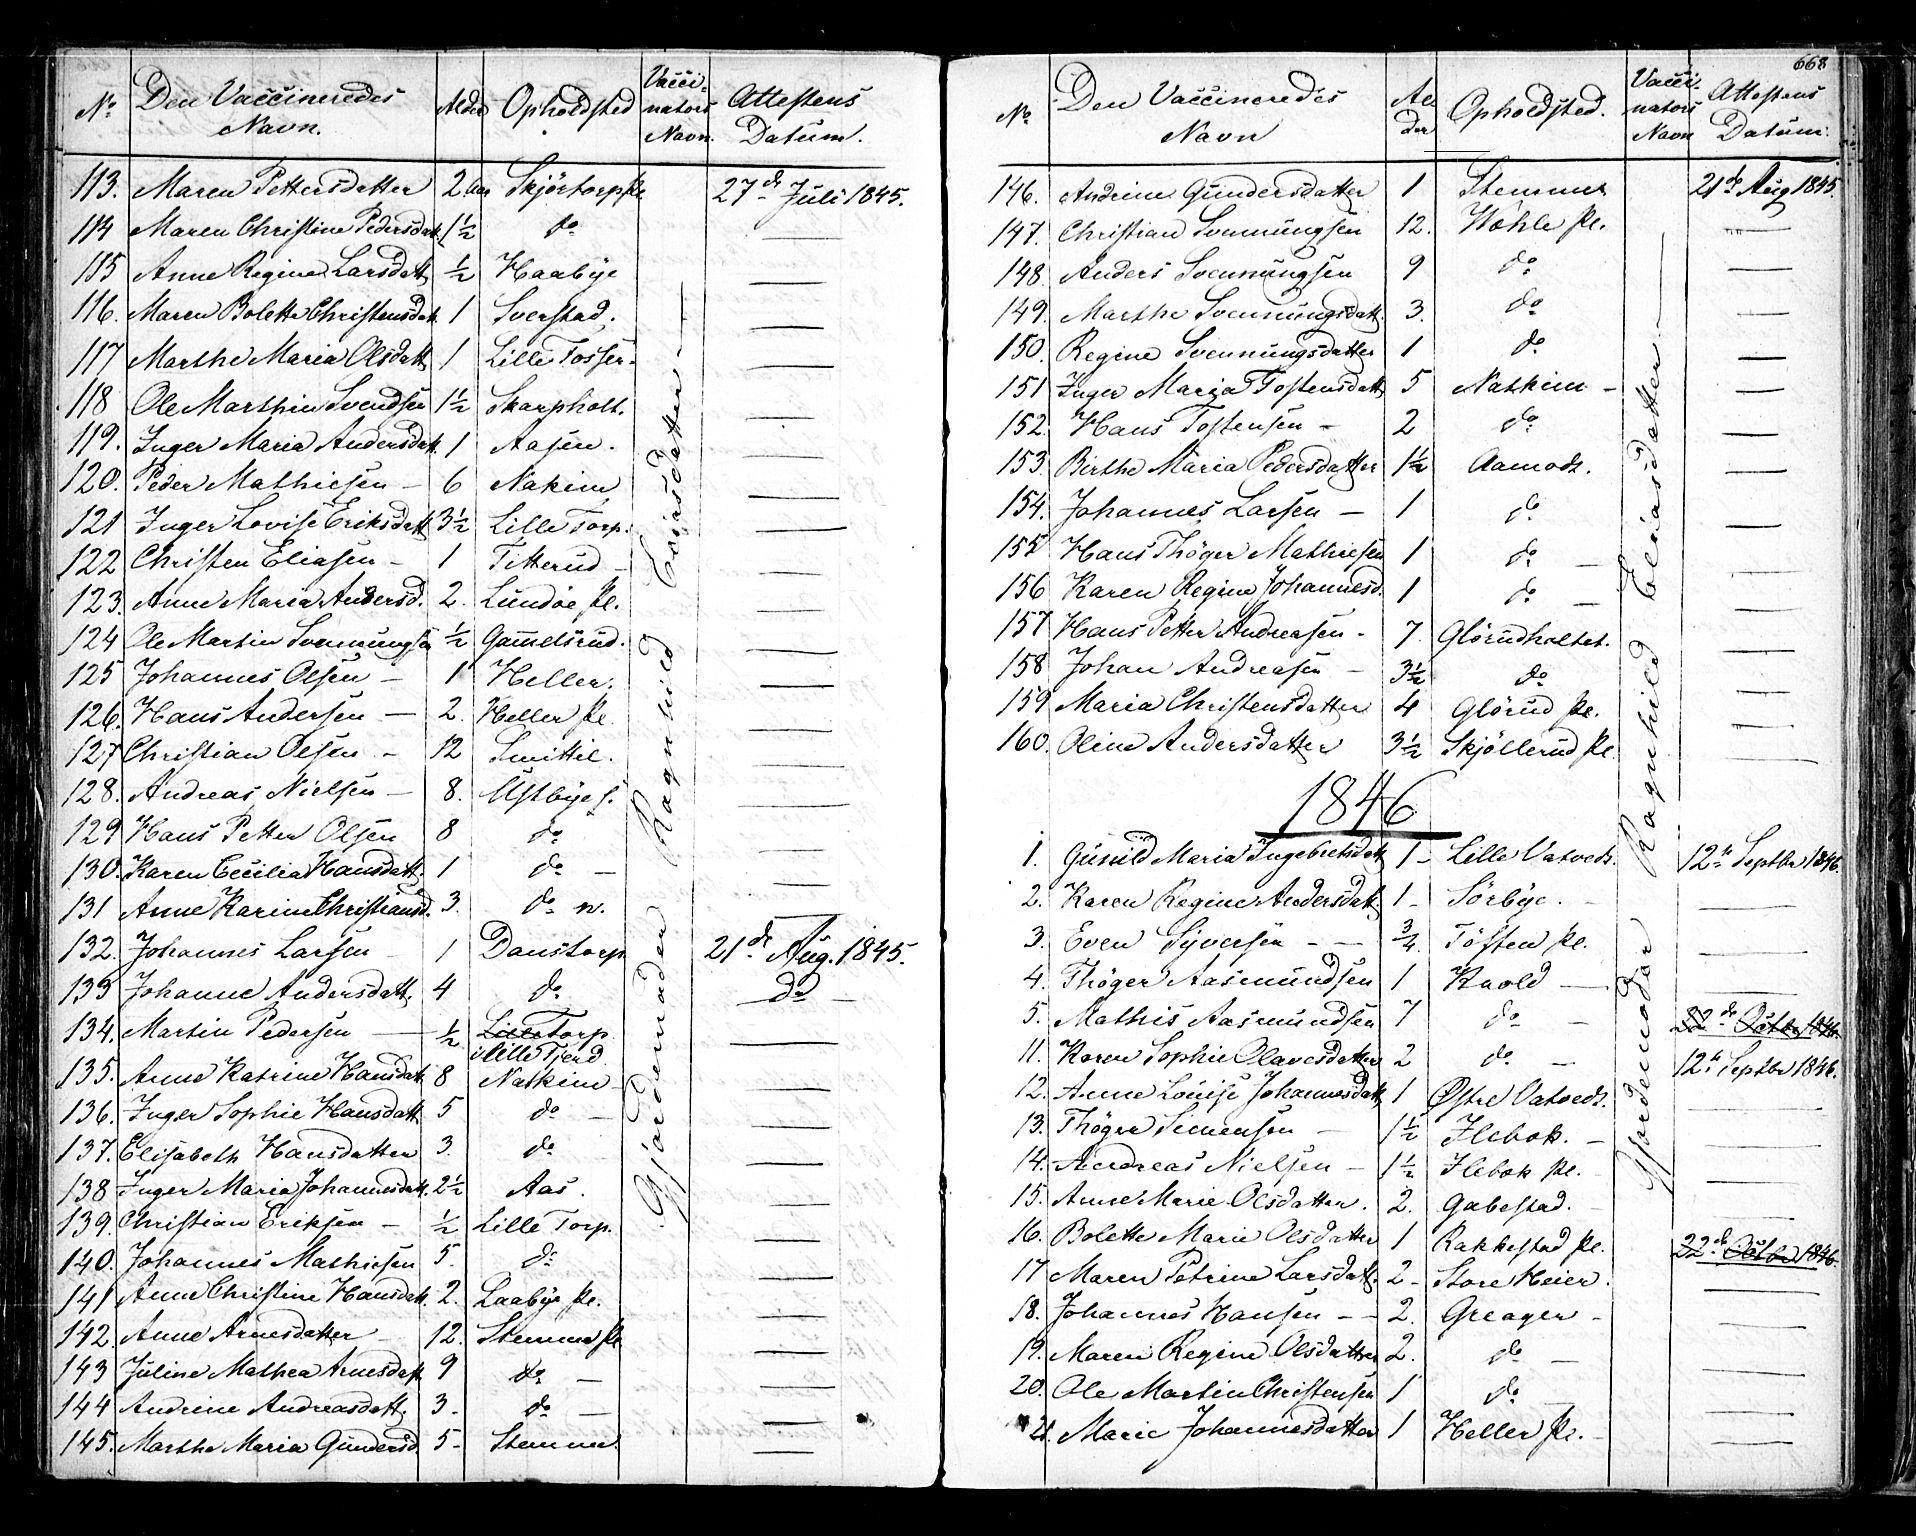 No Den Vaccineredes Navn. Alder Opholdsted Vaccinators Navn. Attestens Datum.
113. Maren Pettersdatter 2 aar Skjörtorp pl. 27de Juli 1845.
114 Maren Christine Pedersdatt. 1½ do —
115 Anne Regine Larsdatt ½ Haabye —
116. Maren Bolette Christensdatt. 1 Sverstad. —
117 Marthe Maria Olsdatt 1 Lille Tosser. —
118 Ole Marthin Svendsen 1½ Skarpholt. —
119. Inger Maria Andersdatt. 1 Aasen. —
120. Peder Mathiesen — 6 Nakim —
121 Inger Lovise Eriksdatt 3½ Lille Torp. —
122 Christen Eliasen — 1 Titterud — —
123. Anne Maria Andersd. 2. Lundöe pl. —
124 Ole Martin Svennungsen ½ Gamelsrud. —
125 Johannes Olsen — 1 Heller. —
126. Hans Andersen — 2. Heller pl. —
127 Christian Olsen — 12 Smittil. —
128. Andreas Nielsen — 8. Ustbye —
129 Hans Petter Olsen 8 do —
130. Karen Cecilia Hansdatt. 1 do — —
131 Anne Karine Christiansd. 3. do n. —
132. Johannes Larsen — 1 Danstorp 21de Aug. 1845.
133 Johanne Andersdatt. 4 do — do —
134. Martin Pedersen — ½ Lille Torp —
i Lille Tjerd
135. Anne Katrine Hansdatt 8 Natkim —
136. Inger Sophie Hansdatt 5 do — —
137. Elisabeth Hansdatter 3. do —
138 Inger Maria Johannesdatt. 2½ Aas. —
139. Christian Eriksen — ½ Lille Torp. —
140. Johannes Mathiesen 5. do —
141 Anne Christine Hansdatt. 2. Laabye pl. —
142. Anne Arnesdatter — 12. Stemme pl —
143 Juline Mathea Arnesdatt 9 do — —
144 Andrine Andreasdatt. 3. do — —
145. Marthe Maria Gundersd 5 - Stemner. —
Gjordemoder Ragnhild Eliasdatter —
668
No Den Vaccineredes Navn Alder Opholdsted. Vaccinators Navn Attestens Datum.
146. Andrine Gundersdatter 1 Stemmer 21de Aug 1845.
147. Christian Svennungsen 12. Wöhle pl. —
148. Anders Svennungsen 9 do —
149. Marthe Svennungsdatt. 3. do —
150. Regine Svennungsdatter 1 do —
151 Inger Maria Tostensdatt 5 Natkim — —
152. Hans Tostensen — 2 do —
153. Birthe Maria Pedersdatter 1½ Aamodt. —
154. Johannes Larsen — 1 do —
155 Hans Thöger Mathiesen 1 do — —
156 Karen Regine Johannesd. 1 do — —
157 Hans Petter Andreasen - 7. Glörudholtet. —
158 Johan Andreasen — 3½ do —
159 Maria Christensdatter 4 Glörud pl. —
160. Oline Andersdatter 3½ Skjöllerud pl. —
1846
1. Gunild Maria Ingebretsdatt 1 - Lille Vatvedt. 12te Septbr 1846.
2. Karen Regine Andersdatt. 1 - Sörbye. —
3. Even Syversen — — ¾ Töften pl. —
4. Thöger Aasmundsen 1 Kaold — —
5. Mathis Aasmundsen 7 do — 22de Octbr 1846.
11. Karen Sophie Olavesdatter 2 do — 12te Septbr 1846.
12. Anne Louise Johannesdatt 1 Østre Vatvedt. —
13. Thöger Simensen — 1½ Ilebok. — —
14. Andreas Nielsen — 1½ Ilebok pl. —
15. Anne Marie Olsdatter. 2. Gabestad. —
16. Bolette Marie Olsdatter 1 Rakkestad pl. 22de Octbr 1846.
17 Maren Petrine Larsdatt. 2 - Store Heier. —
18. Johannes Hansen — — 2. Greager — —
19. Maren Regine Olsdatter 2. do — —
20. Ole Martin Christensen 1 do —
21. Marie Johannesdatter 1 Heller pl. —
Gjordemoder Ragnhild Eliasdatter —